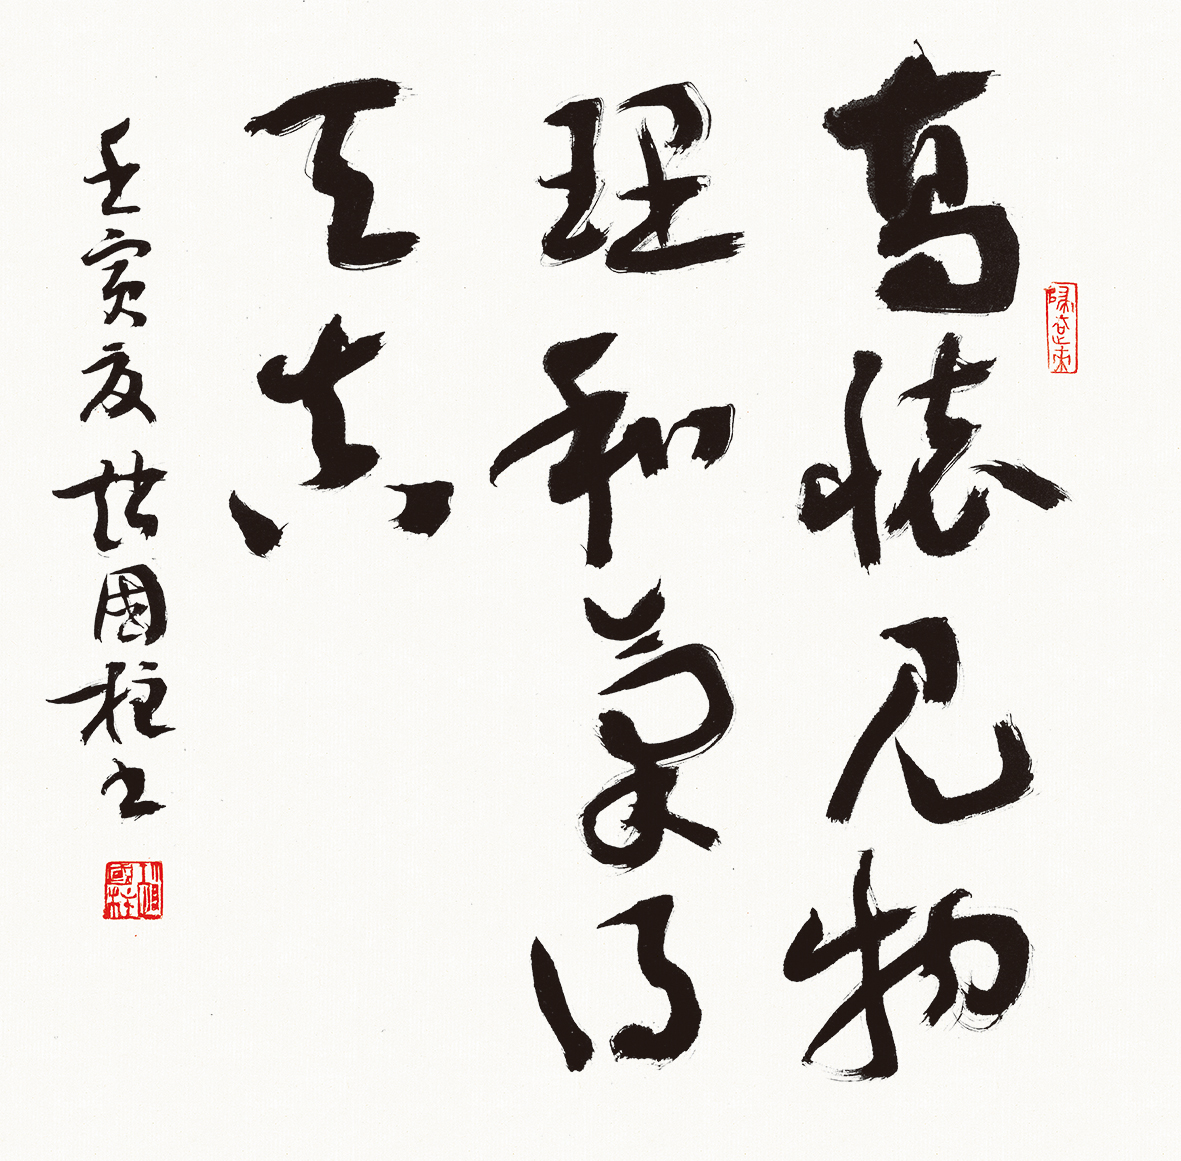 高懷見物
理和氣得
天真
壬寅夏 國柱書
國柱